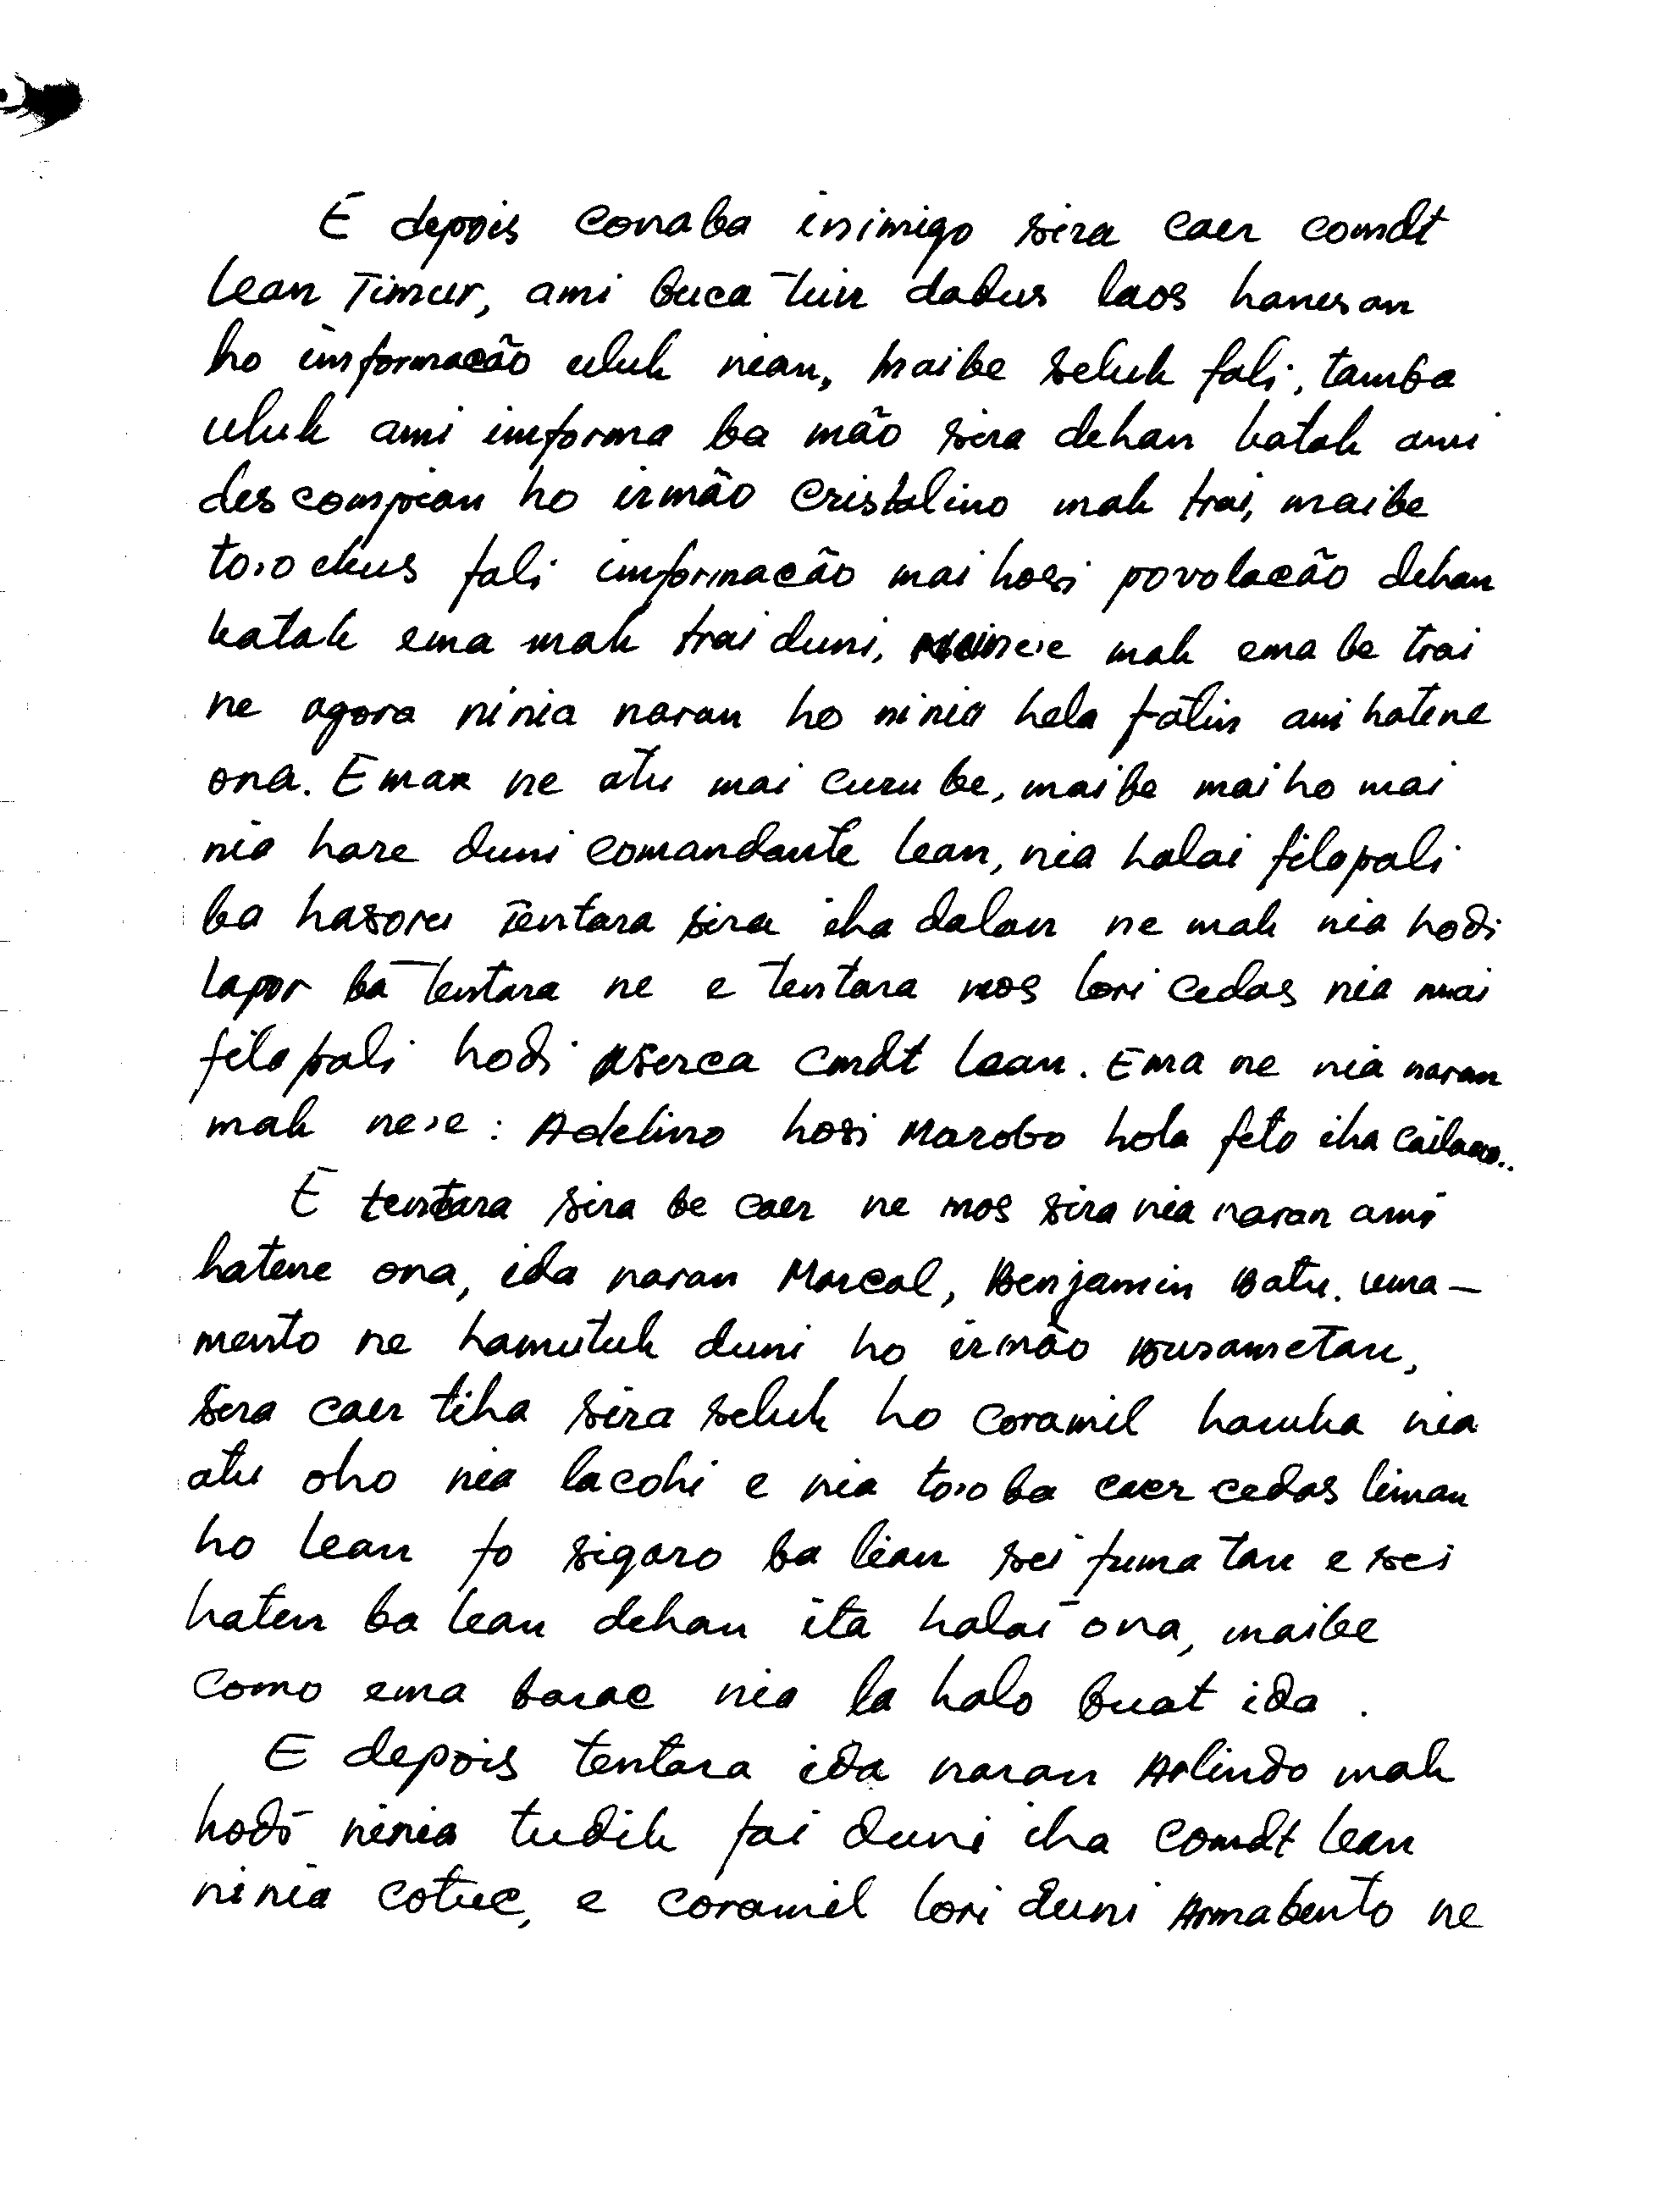 E depois conaba inimigo sira caer comdt
Lean Timur, ami buca tuir dadus laos hanesan
ho imformacão uluk nian, maibe seluk fali, tamba
uluk ami imforma ba mão sira dehan katak ami
descompian ho irmão Cristalino mak trai, maibe
to,o ekus fali imformacão mai hosi povolacão dehan
katak ema mak trai duni, mak ema be trai
ne agora ninia naran ho ninia hela fatin ami hatene
ona. Emar ne atu mai curu be, maibe mai ho mai
nia hare duni comandante lean, nia halai filapali
ba hasoru Tentara sira iha dalan ne mak nia hodi
lapor ba Tentara ne e Tentara mos lori cedas nia mai
fila pali hodi aserca cmdt lean. Ema ne nia naran
mak ne,e : Adelino hosi Marobo hola feto iha Cailaco..
E tentara sira be caer ne mos sira nia naran ami
hatene ona, ida naran Marcal, Benjamin Batu. uma-
mento ne hamutuk duni ho irmão Burametan,
sira caer tiha sira seluk ho coramil haruka nia
atu oho nia lacohi e nia to,o ba caer cedas liman
ho lean fo sigaro ba lian sei fuma tan e sei
haten ba lean dehan ita halai ona, maibe
como ema barac nia la halo buat ida .
E depois tentara ida naran Arlindo mak
hodi ninia tudik fai duni iha comdt lean
ninia cotuc, e coramil lori duni Armabento ne